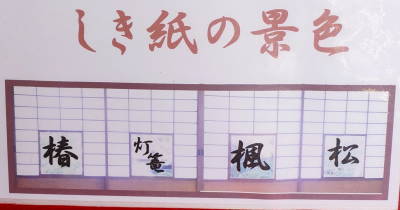 しき紙の景色
椿 灯篭 楓 松